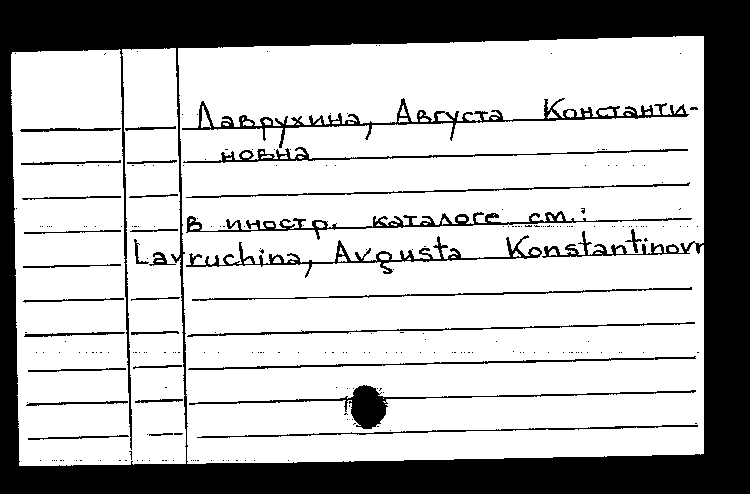 Лаврухина, Августа Константи-
новна
в иностр. каталоге см.:
Lavruchina, Avgusta Konstantinovn